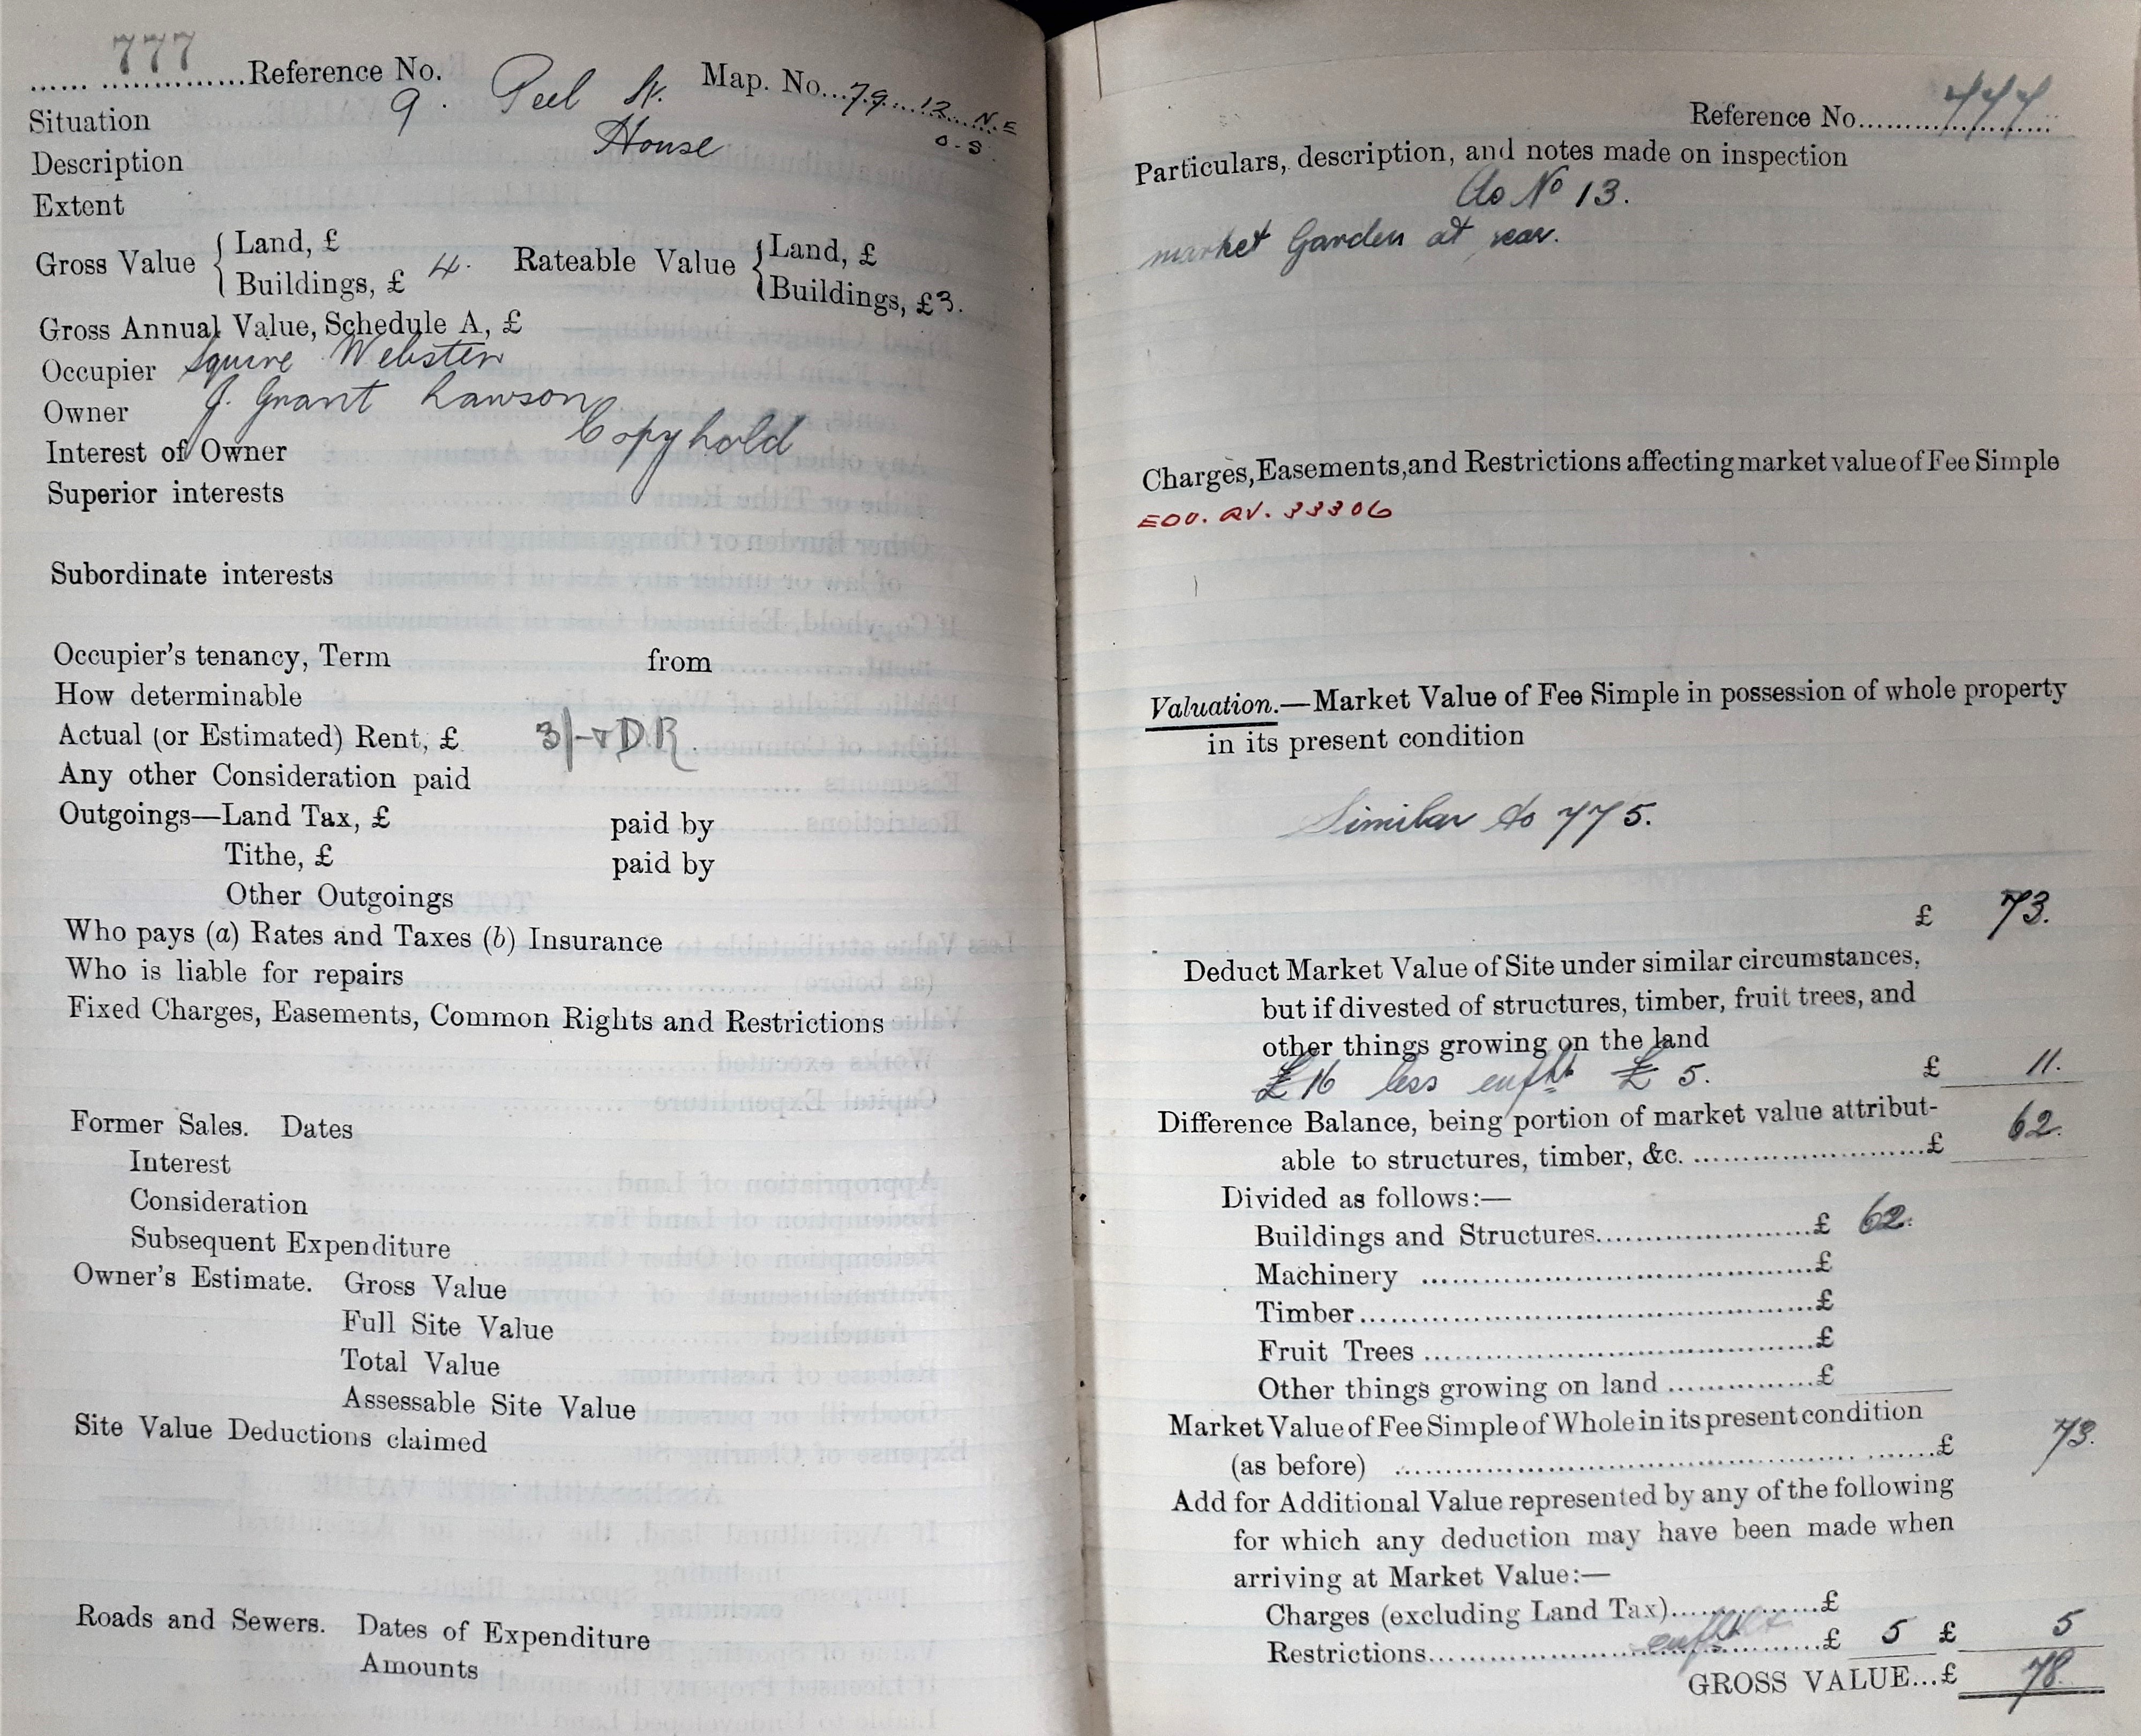 777
...... ................Reference No.
Map. No...79...12...N.E
O.S.
Situation 9. Peel St.
Description House
Extent
Gross Value { Land, £
Buildings, £ 4.
Rateable Value { Land, £
Buildings, £3.
Gross Annual Value, Schedule A, £
Occupier Squire Webster
Owner J. Grant Lawson
Interest of Owner Copyhold
Superior interests
Subordinate interests
Occupier's tenancy, Term from
How determinable
Actual (or Estimated) Rent, £ 3/- + D.R.
Any other Consideration paid
Outgoings—Land Tax, £ paid by
Tithe, £ paid by
Other Outgoings
Who pays (a) Rates and Taxes (b) Insurance
Who is liable for repairs
Fixed Charges, Easements, Common Rights and Restrictions
Former Sales. Dates
Interest
Consideration
Subsequent Expenditure
Owner's Estimate. Gross Value
Full Site Value
Total Value
Assessable Site Value
Site Value Deductions claimed
Roads and Sewers. Dates of Expenditure
Amounts
Reference No. 777
Particulars, description, and notes made on inspection
As No 13.
market Garden at rear.
Charges, Easements, and Restrictions affecting market value of Fee Simple
33306
Valuation.—Market Value of Fee Simple in possession of whole property
in its present condition
Similar to 775.
£ 73.
Deduct Market Value of Site under similar circumstances,
but if divested of structures, timber, fruit trees, and
other things growing on the land
£16 less enfht £5. £ 11.
Difference Balance, being portion of market value attribut-
able to structures, timber, &c. ..........................£ 62.
Divided as follows:—
Buildings and Structures........................£ 62.
Machinery ...........................................£
Timber..................................................£
Fruit Trees ...........................................£
Other things growing on land ...............£
Market Value of Fee Simple of Whole in its present condition
(as before) ....................................................... .......£ 73.
Add for Additional Value represented by any of the following
for which any deduction may have been made when
arriving at Market Value:—
Charges (excluding Land Tax)................£
Restrictions...enfht...£ 5 £ 5
GROSS VALUE...£ 78.